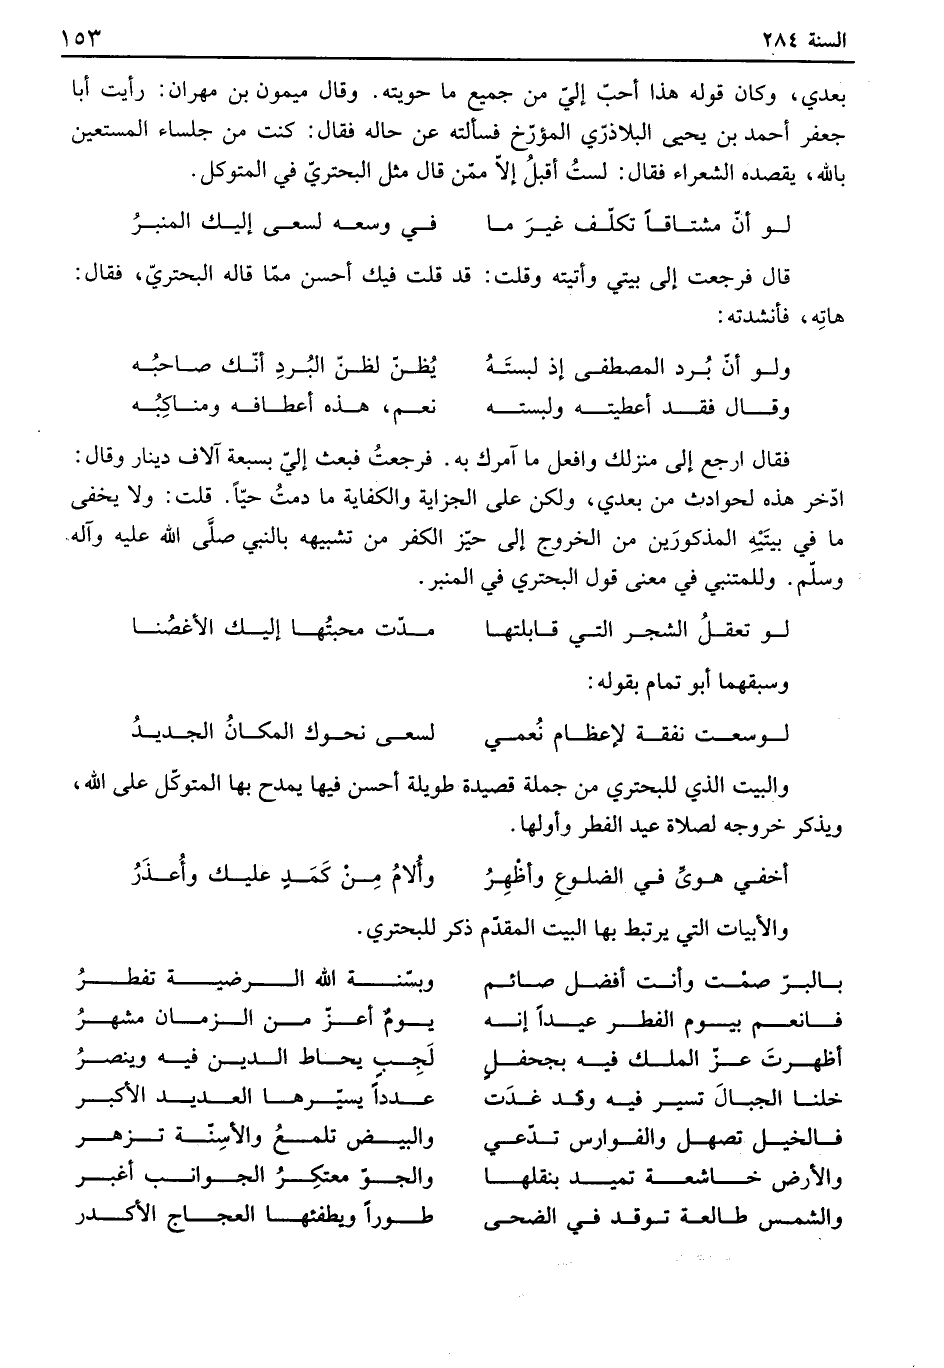 السنة ٢٨٤ ١٥٣
بعدي، وكان قوله هذا أحبّ إليّ من جميع ما حويته. وقال ميمون بن مهران: رأيت أبا
جعفر أحمد بن يحيى البلاذرّي المؤرّخ فسألته عن حاله فقال: كنت من جلساء المستعين
بالله، يقصده الشعراء فقال: لستُ أقبلُ إلاّ ممّن قال مثل البحتريّ في المتوكل.
لو أنّ مشتاقاً تكلّف غيرَ ما في وسعه لسعى إليك المنبرُ
قال فرجعت إلى بيتي وأتيته وقلت: قد قلت فيك أحسن ممّا قاله البحتريّ، فقال:
هاتِه، فأنشدته:
ولو أنّ بُرد المصطفى إذ لبستَهُ يُظنّ لظنّ البُردِ أنّك صاحبُه
وقال فقد أعطيته ولبسته نعم، هذه أعطافه ومناكبُه
فقال ارجع إلى منزلك وافعل ما آمرك به. فرجعتُ فبعث إليّ بسبعة آلاف دينار وقال:
ادّخر هذه لحوادث من بعدي، ولكن على الجزاية والكفاية ما دمتُ حيّاً. قلت: ولا يخفى
ما في بيتَيْه المذكورَين من الخروج إلى حيّز الكفر من تشبيهه بالنبي صلَّى الله عليه وآله
وسلّم. وللمتنبي في معنى قول البحتري في المنبر.
لو تعقلُ الشجر التي قابلتها مدّت محبتُها إليك الأغصُنا
وسبقهما أبو تمام بقوله:
لوسعت نفقة لإعظام نُعمي لسعى نحوك المكانُ الجديدُ
والبيت الذي للبحتري من جملة قصيدة طويلة أحسن فيها يمدح بها المتوكّل على الله،
ويذكر خروجه لصلاة عيد الفطر وأولها.
أخفي هوىً في الضلوعِ وأظْهِرُ وأُلامُ مِنْ كَمَدٍ عليك وأُعذَرُ
والأبيات التي يرتبط بها البيت المقدّم ذكر للبحتري.
بالبرّ صمْت وأنت أفضل صائم وبسّنة الله الرضية تفطرُ
فانعم بيوم الفطر عيداً إنه يومٌ أعزّ من الزمان مشهرُ
أظهرتَ عزّ الملك فيه بجحفلٍ لَجِبٍ يحاط الدين فيه وينصرُ
خلنا الجبالَ تسير فيه وقد غدَت عدداً يسيّرها العديد الأكبر
فالخيل تصهل والفوارس تدّعي والبيض تلمعُ والأسِنّة تزهر
والأرض خاشعة تميد بنقلها والجوّ معتكِرُ الجوانب أغبر
والشمس طالعة توقد في الضحى طوراً ويطفئها العجاج الأكدر